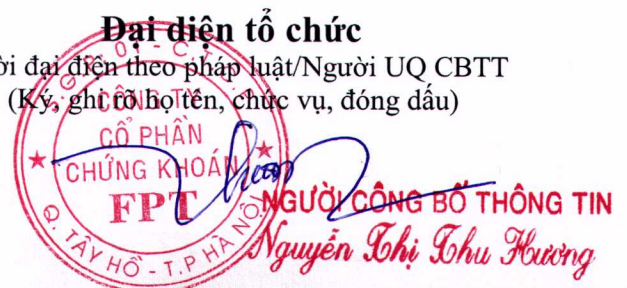 Đại diện tổ chức
ời đại diện theo pháp luật/Người UQ CBTT
(Ký, ghi rõ họ tên, chức vụ, đóng dấu)
CÔNG TY
CỔ PHẦN
CHỨNG KHOÁN
FPT
Q. TÂY HỒ - T.P HÀ NỘI
NGƯỜI CÔNG BỐ THÔNG TIN
Nguyễn Thị Thu Hương